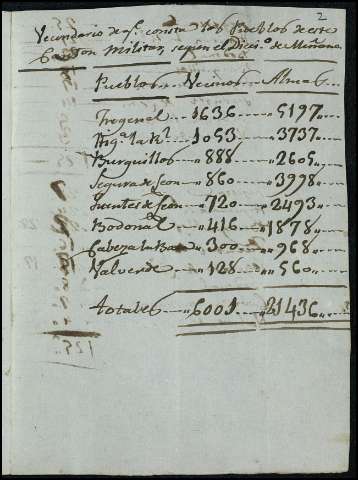 2
Vecindario de q.e consta d los Pueblos de este
Canton Militar, segun el Dicci.o de Miñano.
Pueblos Vecinos Almas
Fregenal 1636 5197
Hig.a la R.l 1053 3737
Burguillos 888 2605
Segura de Leon 860 3998
Fuentes de Leon 720 2493
Bodonal 416 1878
Cabeza la Baca 300 968
Valverde 128 560
Totales 6001 21436
125